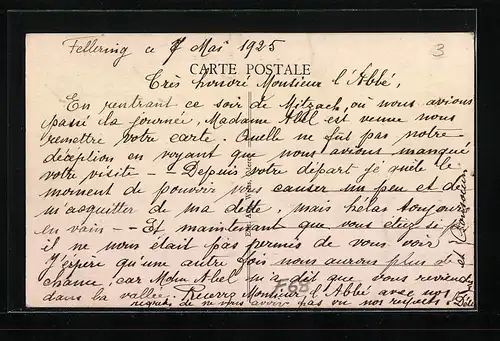 Fellering ce 7 Mai 1925
3
CARTE POSTALE
Très honoré Monsieur l'Abbé,
En rentrant ce soir de Mitzach, où nous avions
passé la journée, Madame Abel est venue nous
remettre votre carte. Quelle ne fut pas notre
déception en voyant que nous avions manqué
votre visite — Depuis votre départ je guète le
moment de pouvoir vous causer un peu et de
m'acquitter de ma dette, mais hélas toujours
en vain — Et maintenant que vous étiez si
il ne nous était pas permis de vous voir
J'espère qu'une autre fois nous aurons plus de
chance, car Mdm Abel m'a dit que vous reviendrez
dans la vallée. Recevez Monsieur l'Abbé avec nos
regrets de ne vous avoir pas vu nos respects
F68